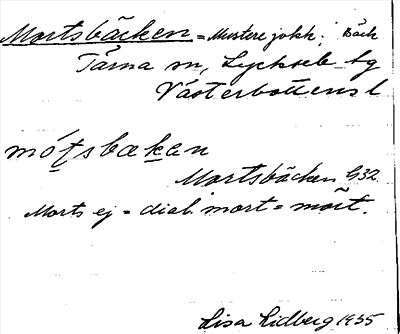 Mortsbäcken = Mustere jokk. Bäck
Tärna sn, Lycksele lg
Västerbottens l
mó́t̯sbækan
Mortsbäcken G32
Morts ej = dial. mort = mört.
Lisa Lidberg 1935